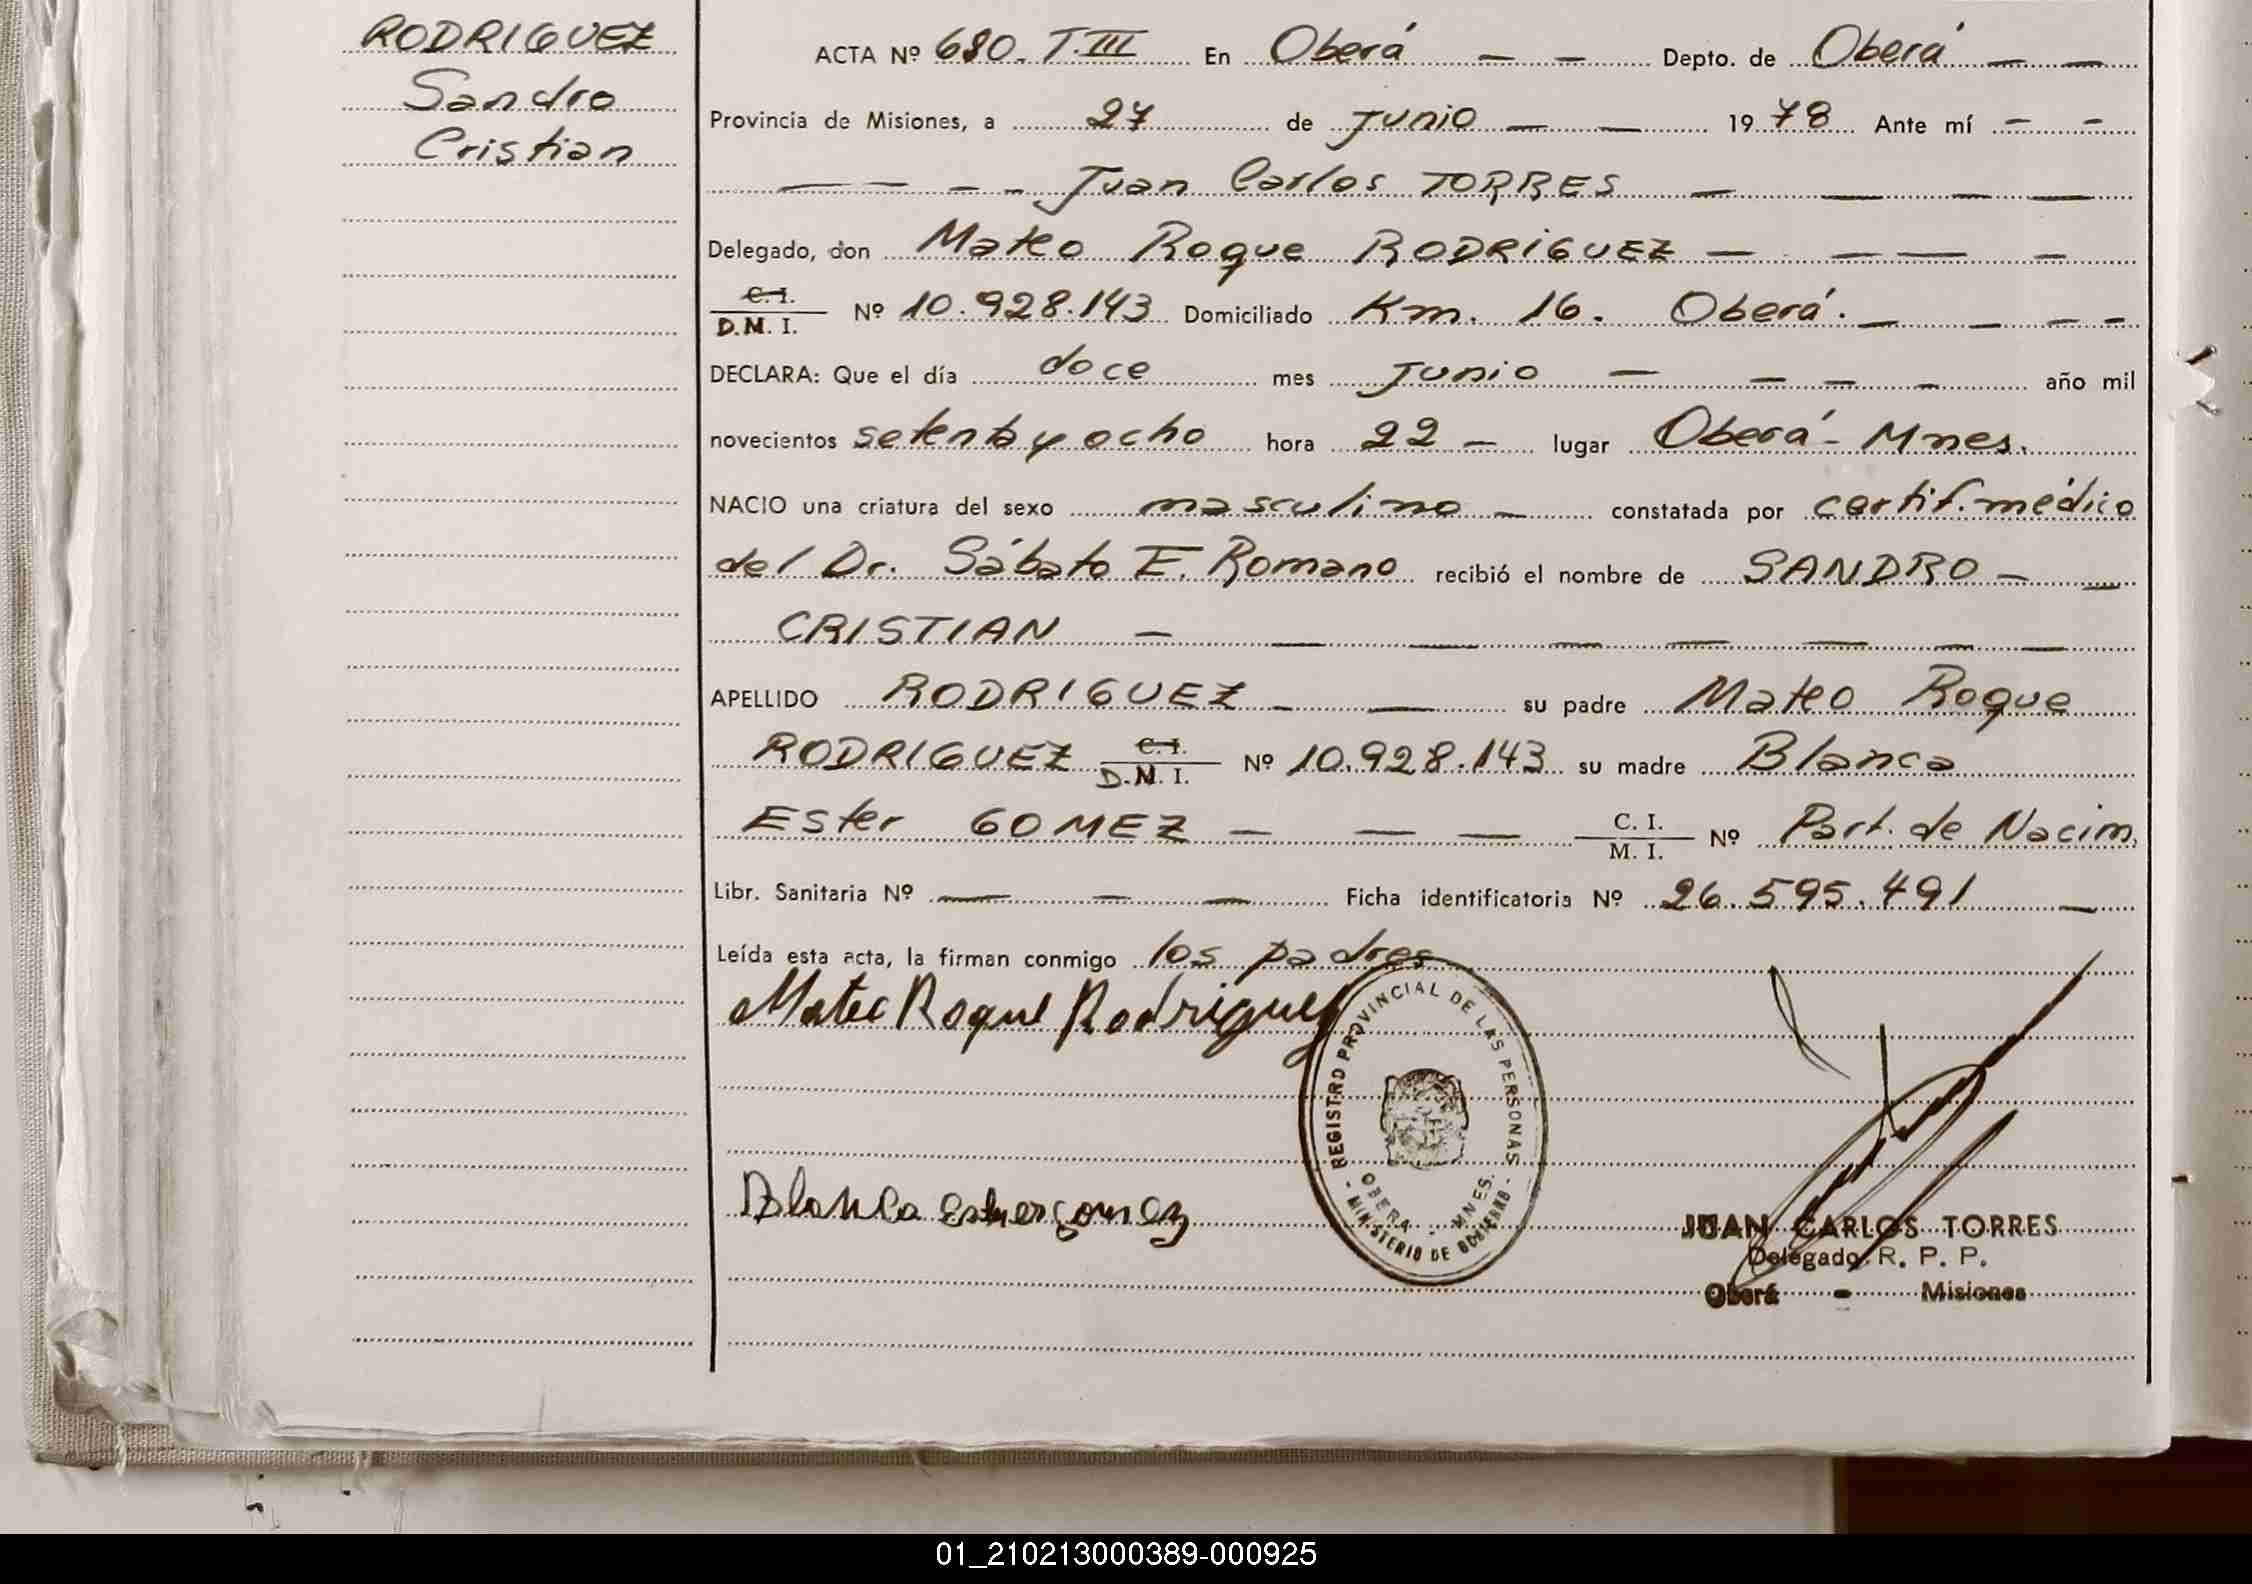 RODRIGUEZ
Sandro
Cristian
ACTA Nº 680. T. III En Oberá — — Depto. de Oberá — —
Provincia de Misiones, a 27 de Junio — — 1978 Ante mí — —
— — — — Juan Carlos TORRES — — — —
Delegado, don Mateo Roque RODRIGUEZ — — — —
C. I.
D.M. I. Nº 10.928.143 Domiciliado Km. 16. Oberá. — — — —
DECLARA: Que el día doce mes Junio — — — — año mil
novecientos setenta y ocho hora 22 — lugar Oberá - Mnes.
NACIO una criatura del sexo masculino — constatada por certif. médico
del Dr. Sábato E. Romano recibió el nombre de SANDRO — —
CRISTIAN — — — — — — — —
APELLIDO RODRIGUEZ — — su padre Mateo Roque
RODRIGUEZ C. I.
D.N. I. Nº 10.928.143 su madre Blanca
Ester GOMEZ — — — C. I.
M. I. Nº Part. de Nacim.
Libr. Sanitaria Nº — — — Ficha identificatoria Nº 26.595.491 —
Leída esta acta, la firman conmigo los padres
Mateo Roque Rodriguez
REGISTRO PROVINCIAL DE LAS PERSONAS
OBERA - MNES.
- MINISTERIO DE GOBIERNO -
Blanca Ester gomez
JUAN CARLOS TORRES
Delegado R. P. P.
Oberá - Misiones
01_210213000389-000925